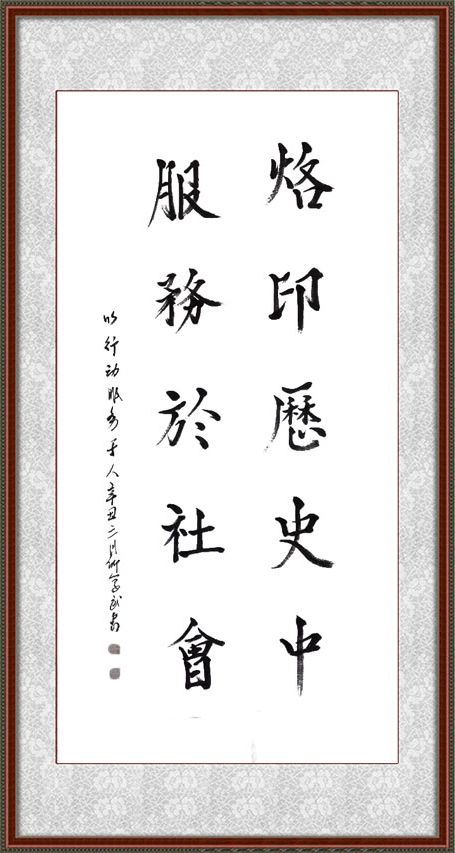 烙印歷史中
服務於社會
以行动服务于人辛丑三月